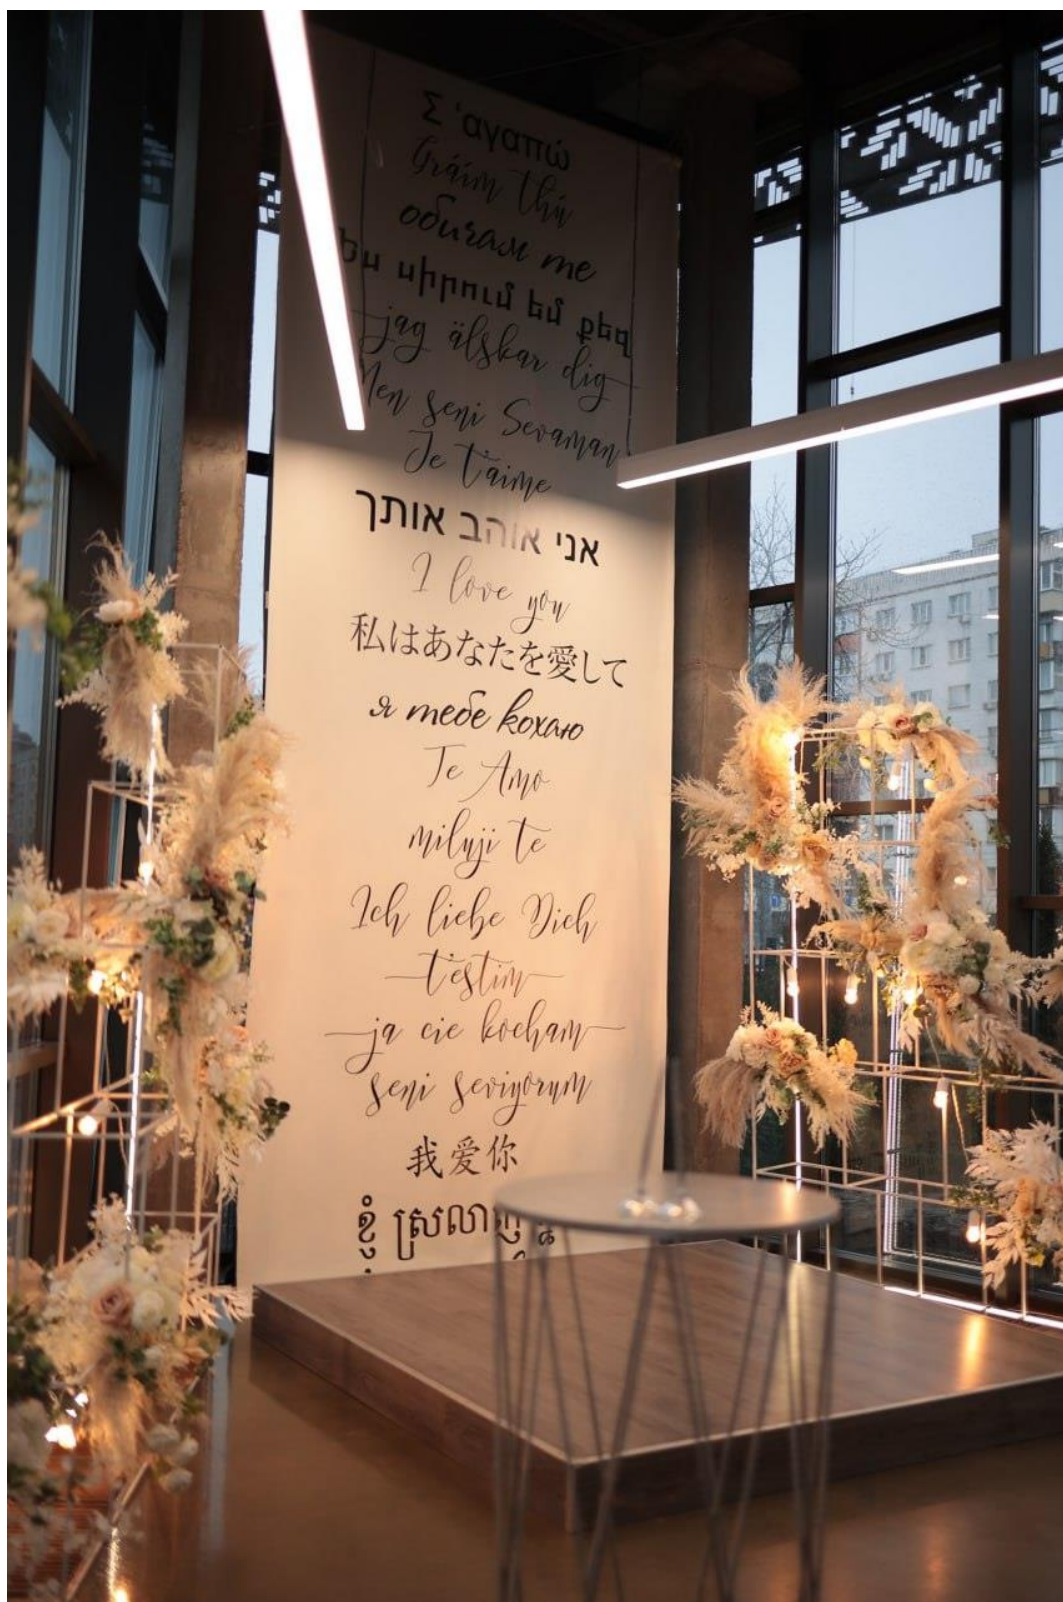 Σ 'αγαπώ
Gráim thú
обичам те
Ես սիրում եմ քեզ
jag älskar dig
Men seni Sevaman
Je t'aime
אני אוהב אותך
I love you
私はあなたを愛して
я тебе кохаю
Te Amo
miluji te
Ich liebe Dich
t'estim
ja cie kocham
seni seviyorum
我爱你
ខ្ញុំ ស្រលាញ់